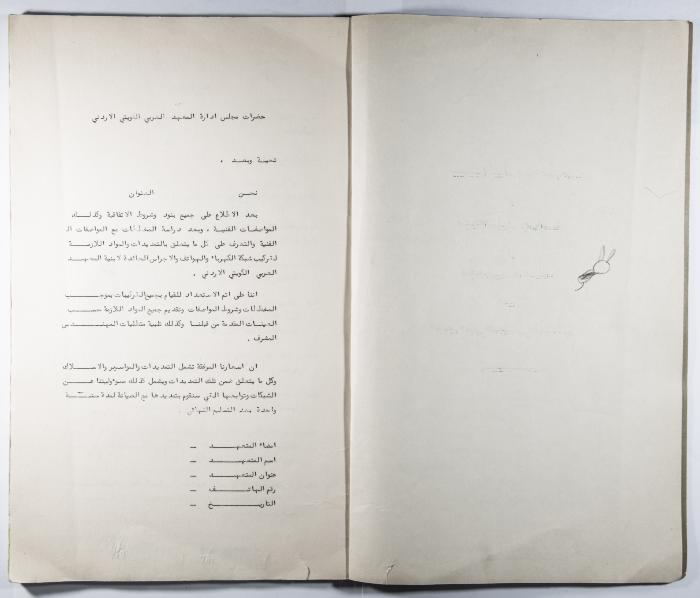 حضرات مجلس ادارة المعهد العربي الكويتي الاردني
تحية وبعد ،
نحن العنوان
بعد الاطلاع على جميع بنود وشروط الاتفاقية وكذلك
المواصفات الفنية ، وبعد دراسة المخططات مع المواصفات
الفنية والتعرف على كل ما يتعلق بالتمديدات والمواد اللازمة
لتركيب شبكة الكهرباء والهواتف والاجراس العائدة لابنية المعهد
العربي الكويتي الاردني .
اننا على اتم الاستعداد للقيام بجميع الترتيبات بموجب
المخططات وشروط المواصفات وتقديم جميع المواد اللازمة حسب
العينات المقدمة من قبلنا وكذلك تلبية متطلبات المهندس
المشرف .
ان اسعارنا المرفقة تشمل التمديدات والمواسير والاسلاك
وكل ما يتعلق ضمن تلك التمديدات ويشمل كذلك مسؤوليتنا عن
الشبكات وتوابعها التي سنقوم بتمديدها مع الصيانة لمدة سنة
واحدة بعد التسليم النهائي .
امضاء المتعهد _
اسم المتعهد _
عنوان المتعهد _
رقم الهاتف _
التاريخ _